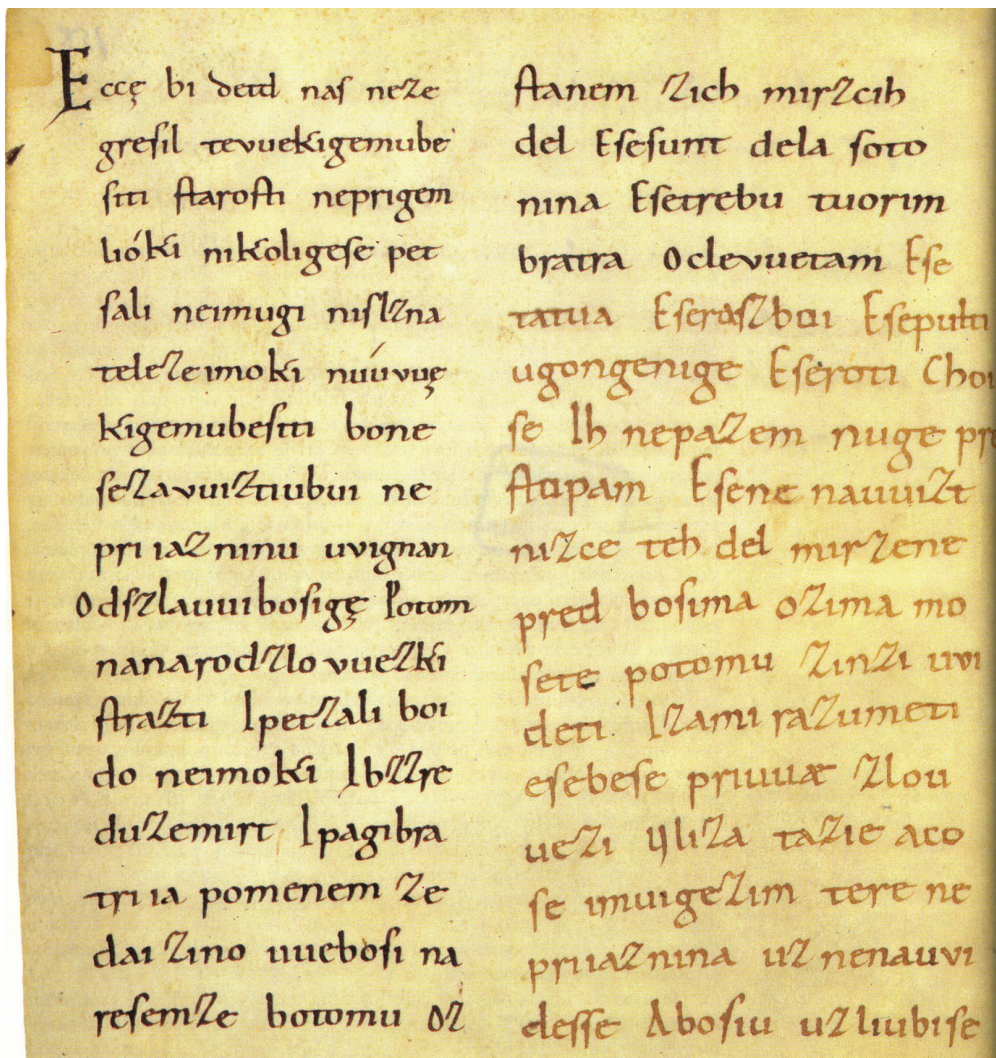 Eccę bi detd naſ neze
greſil tevuekigemube
ſiti ſtaroſti neprigem
lióki nikoligeſe pet
ſali neimugi niſlzna
teleze imoki núúvuę
kigemubeſiti bone
ſezavuiztiubui ne
pri iazninu uvignan
Odszlauuibosigę Potom
nanarodzlovuezki
ſtrazti Ipetzali boi
do neimoki Ibzzre
duzemirt Ipagibra
tri ia pomenem ze
dai zino uuebosi na
reſemze botomu oz
ſtanem zich mirzcih
del Eſeſunt dela ſoto
nina Eſetrebu tuorim
bratra Oclevuetam Eſe
tatua Eſeraszboi Eſepulti
ugongenige Eſeroti Choi
ſe Ih nepazem nuge pre
ſtopam Eſene nauuizt
nizce teh del mirzene
pred bosima ozima mo
ſete potomu zinzi uvi
deti Izami razumeti
eſebeſe priuuæ zlou
uezi Yliza tazie aco
ſe imuigezim tere ne
priiaznina uz nenauvi
desſe Aboſiu uzliubiſe